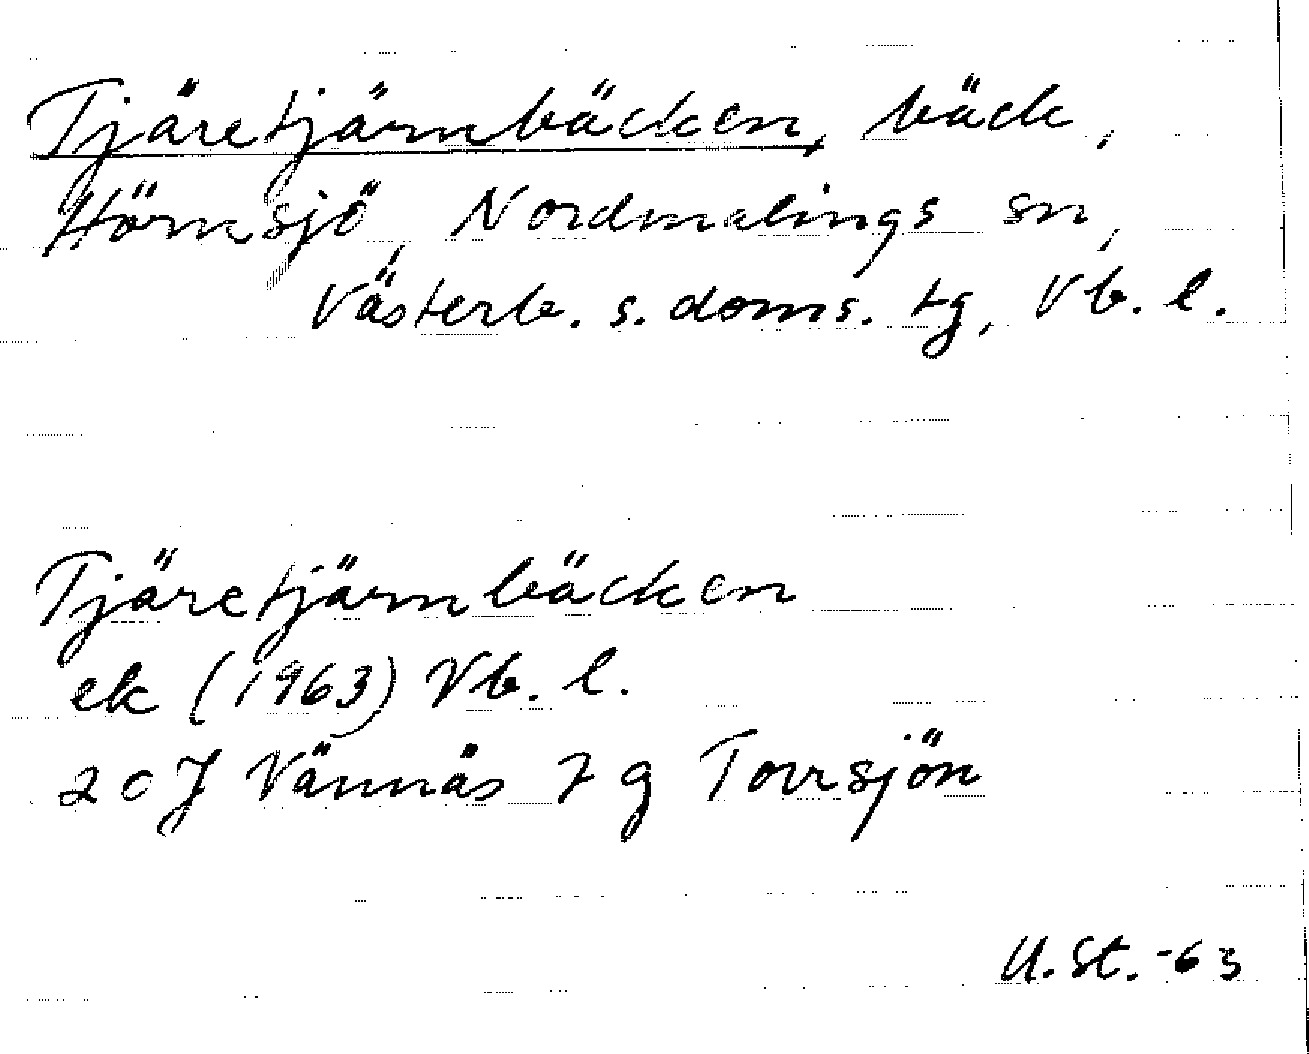 Tjäretjärnbäcken, bäck,
Hörnsjö, Nordmalings sn,
Västerb. s. doms. tg, Vb. l.
Tjäretjärnbäcken
ek (1963) Vb. l.
20 J Vännäs 7 g Torrsjön
U. St. -63